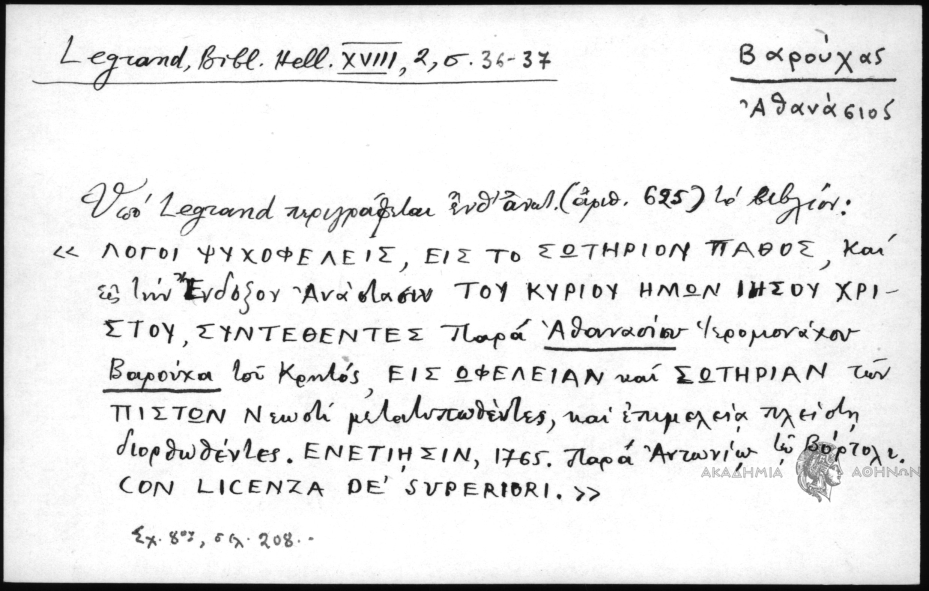 Legrand, Bibl. Hell. XVIII, 2, σ. 36-37
Βαρούχας
Ἀθανάσιος
Ὑπό Legrand περιγράφεται ἐνθ' ἀνωτ. (ἀριθ. 625) τό βιβλίον:
« ΛΟΓΟΙ ΨΥΧΟΦΕΛΕΙΣ, ΕΙΣ ΤΟ ΣΩΤΗΡΙΟΝ ΠΑΘΟΣ, Καί
εἰς τήν Ἔνδοξον Ἀνάστασιν ΤΟΥ ΚΥΡΙΟΥ ΗΜΩΝ ΙΗΣΟΥ ΧΡΙ-
ΣΤΟΥ, ΣΥΝΤΕΘΕΝΤΕΣ Παρά Ἀθανασίου Ἱερομονάχου
Βαρούχα τοῦ Κρητός, ΕΙΣ ΩΦΕΛΕΙΑΝ καί ΣΩΤΗΡΙΑΝ τῶν
ΠΙΣΤΩΝ Νεωστί μετατυπωθέντες, καί ἐπιμελείᾳ πλείστῃ
διορθωθέντες. ΕΝΕΤΙΗΣΙΝ, 1765. Παρά Ἀντωνίῳ τῷ Βόρτολι.
CON LICENZA DE' SUPERIORI. »
ΑΚΑΔΗΜΙΑ ΑΘΗΝΩΝ
Σχ. 8ον, σελ. 208.-